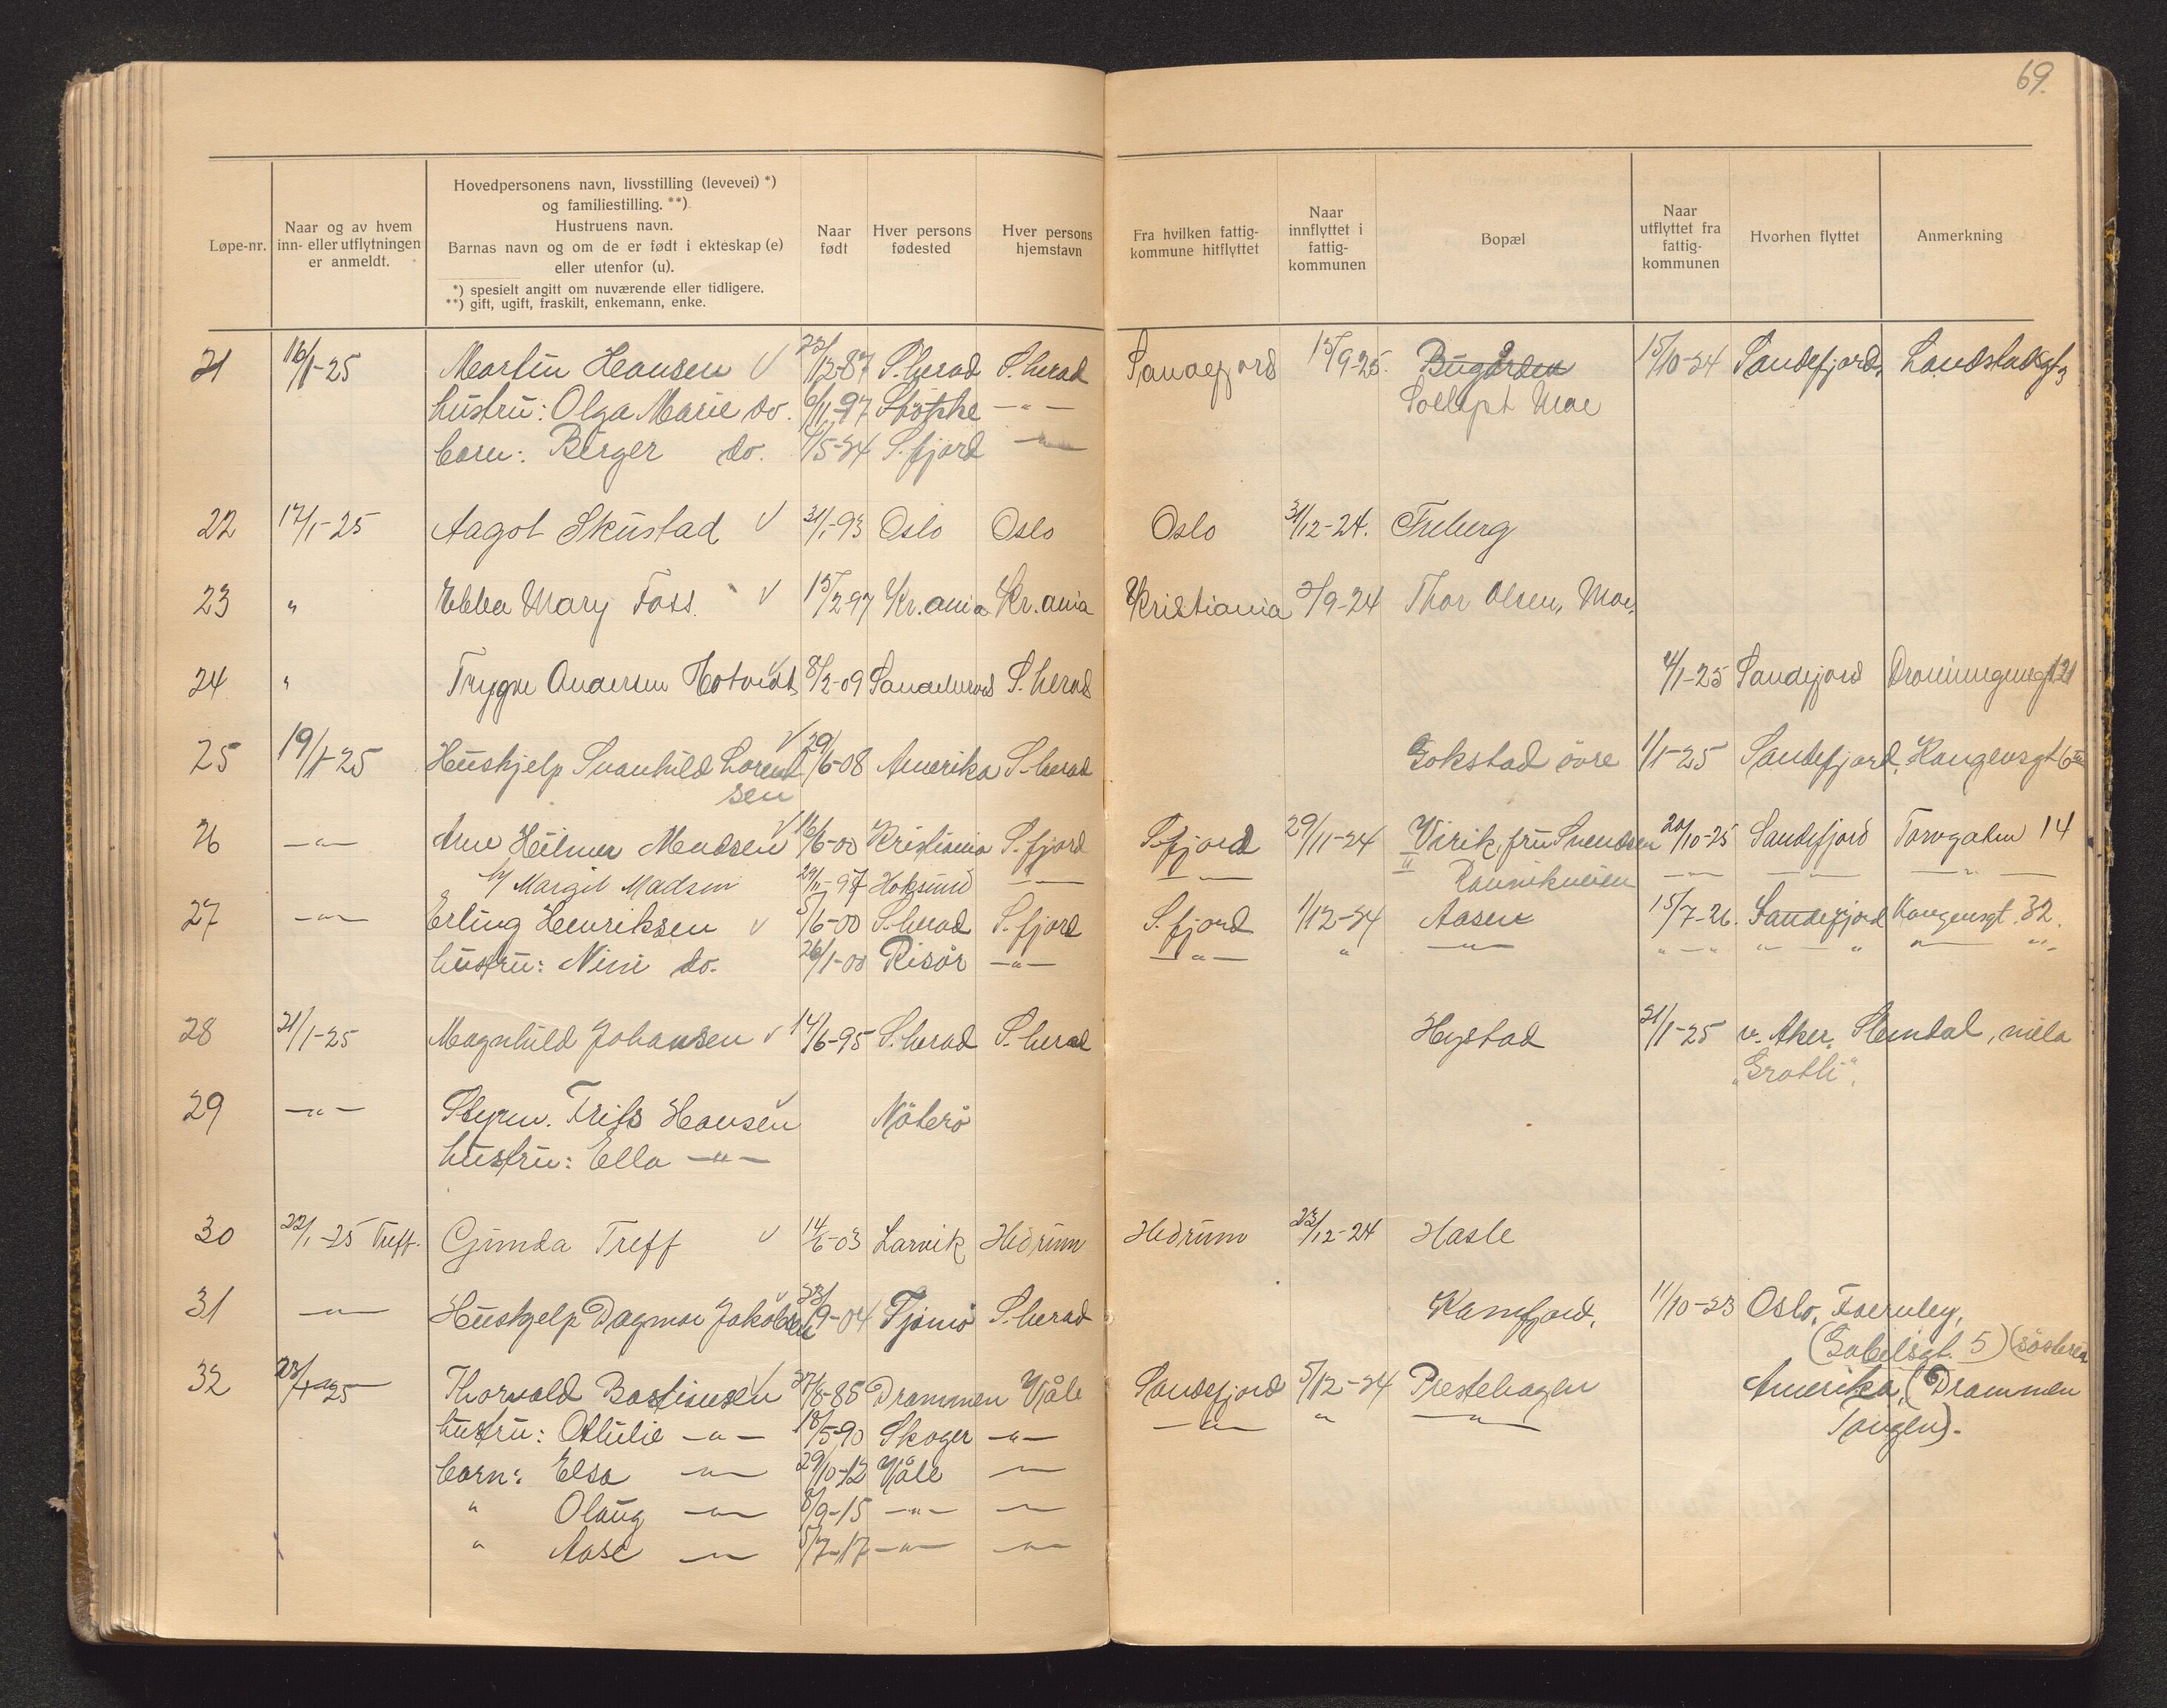 69.
Løpe-nr.
Naar og av hvem
inn- eller utflytningen
er anmeldt.
Hovedpersonens navn, livsstilling (levevei) *)
og familiestilling. **)
Hustruens navn.
Barnas navn og om de er født i ekteskap (e)
eller utenfor (u).
*) spesielt angitt om nuværende eller tidligere.
**) gift, ugift, fraskilt, enkemann, enke.
Naar
født
Hver persons
fødested
Hver persons
hjemstavn
Fra hvilken fattig-
kommune hitflyttet
Naar
innflyttet i
fattig-
kommunen
Bopæl
Naar
utflyttet fra
fattig-
kommunen
Hvorhen flyttet
Anmerkning
21 16/1-25 Martin Hansen √ /12-87 S.herad S.herad Sandefjord 15/9-25. Bugården 15/10-24 Sandefjord, Landstadsgt 3
hustru: Olga Marie do. 6/11-97 Stokke -"- Moe
barn: Birger do. /5-24 S.fjord -"-
22 17/1-25 Aagot Skustad √ 31/1-93 Oslo Oslo Oslo 31/12-24. Freberg
23 " Ebba Mary Foss. √ 15/2 97 Kr.ania Kr.ania Kristiania /9-24 Thor Olsen, Moe.
24 " Trygve Andersen Hotvedt √ 8/2-09 Sandeherred S.herad /1-25 Sandefjord Dronningensgt 21
25 19/1-25 Hushjelp Svanhild Lorent √ 29/6-08 Amerika S.herad Gokstad övre 1/1-25 Sandefjord, Kongensgt 6
sen
26 -"- Arne Hilmer Madsen √ 16/6-00 Kristiania S.fjord S.fjord 29/11-24 Virik, fru Svendsen 20/10-25 Sandefjord Torvgaten 14
Margit Madsen 29/11-97 Hoksund -"- -"- " Ranvikveien -"- -"- -"-
27 -"- Erling Henriksen √ 5/6-00 S.herad S.fjord S.fjord 1/12-24 Aasen 15/7-26. Sandefjord Kongensgt. 32.
hustru: Nini do. 26/1-00 Risör -"- -"- " -"- "-" "-" "-"
28 21/1-25 Magnhild Johansen √ 14/6-95 S.herad S.herad Hystad 21/1-25 v. Aker, Slemdal, villa
"Grotli".
29 -"- Styrm. Frits Hansen √ Nöterö
hustru: Ella -"-
30 22/1-25 Treff. Gunda Treff √ 14/6-03 Larvik Hedrum Hedrum 23/12-24 Hasle
31 -"- Hushjelp Dagmar Jakobsen √ 23/9-04 Tjömö S.herad Kamfjord. 11/10-23 Oslo,
(Gabelsgt. 5) (sösteren
32 23/1-25 Thorvald Bastiansen √ 27/8-85 Drammen Våle Sandefjord 5/12-24 Prestehagen Amerika, (Drammen
hustru: Othilie -"- 18/5-90 Skoger -"- -"- " -"- Tangen).
barn: Elsa -"- 29/10-12 Våle -"-
" Olaug -"- 8/9-15 -"- -"-
" Aase -"- 5/7-17 -"- -"-